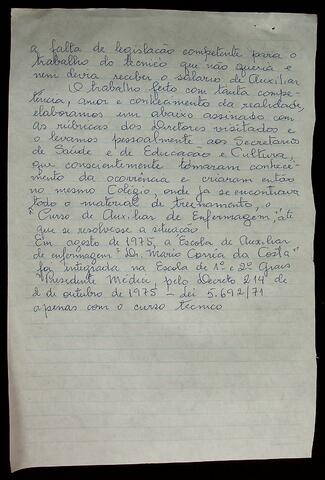 a falta de legislação competente para o
trabalho do técnico que não queria e
nem devia receber o salário de Auxiliar.
O trabalho feito com tanta compe-
tência, amor e conhecimento da realidade,
elaboramos um abaixo assinado com
as rúbricas dos Diretores visitados e
o levamos pessoalmente aos Secretários
de Saúde e de Educação e Cultura,
que conscientemente tomaram conheci-
mento da ocorrência e criaram então
no mesmo Colégio, onde já se encontrava
todo o material de treinamento, o
"Curso de Auxiliar de Enfermagem," até
que se resolvesse a situação
Em agosto de 1975, a Escola de Auxiliar
de enfermagem "Dr. Mario Corrêa da Costa"
foi integrada na Escola de 1º e 2º Graus
Presidente Médici, pelo Decreto 214 de
2 de outubro de 1975 – lei 5.692/71
apenas com o curso técnico